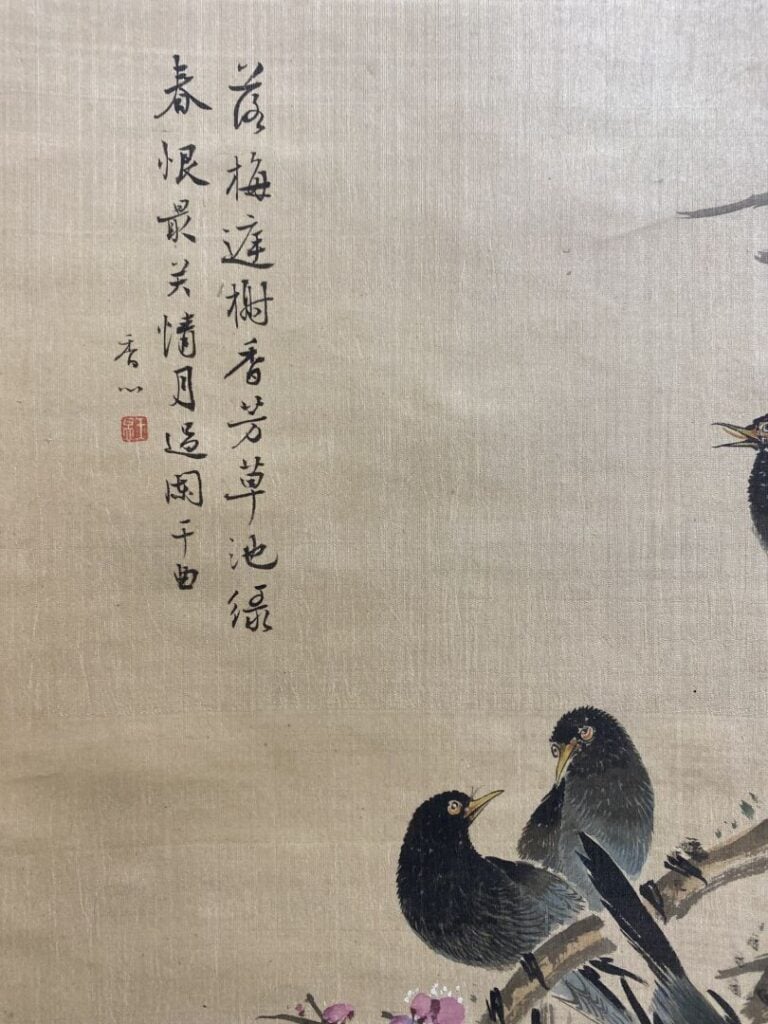 落梅庭榭香芳草池綠
春恨最关情月過闌干曲
香心